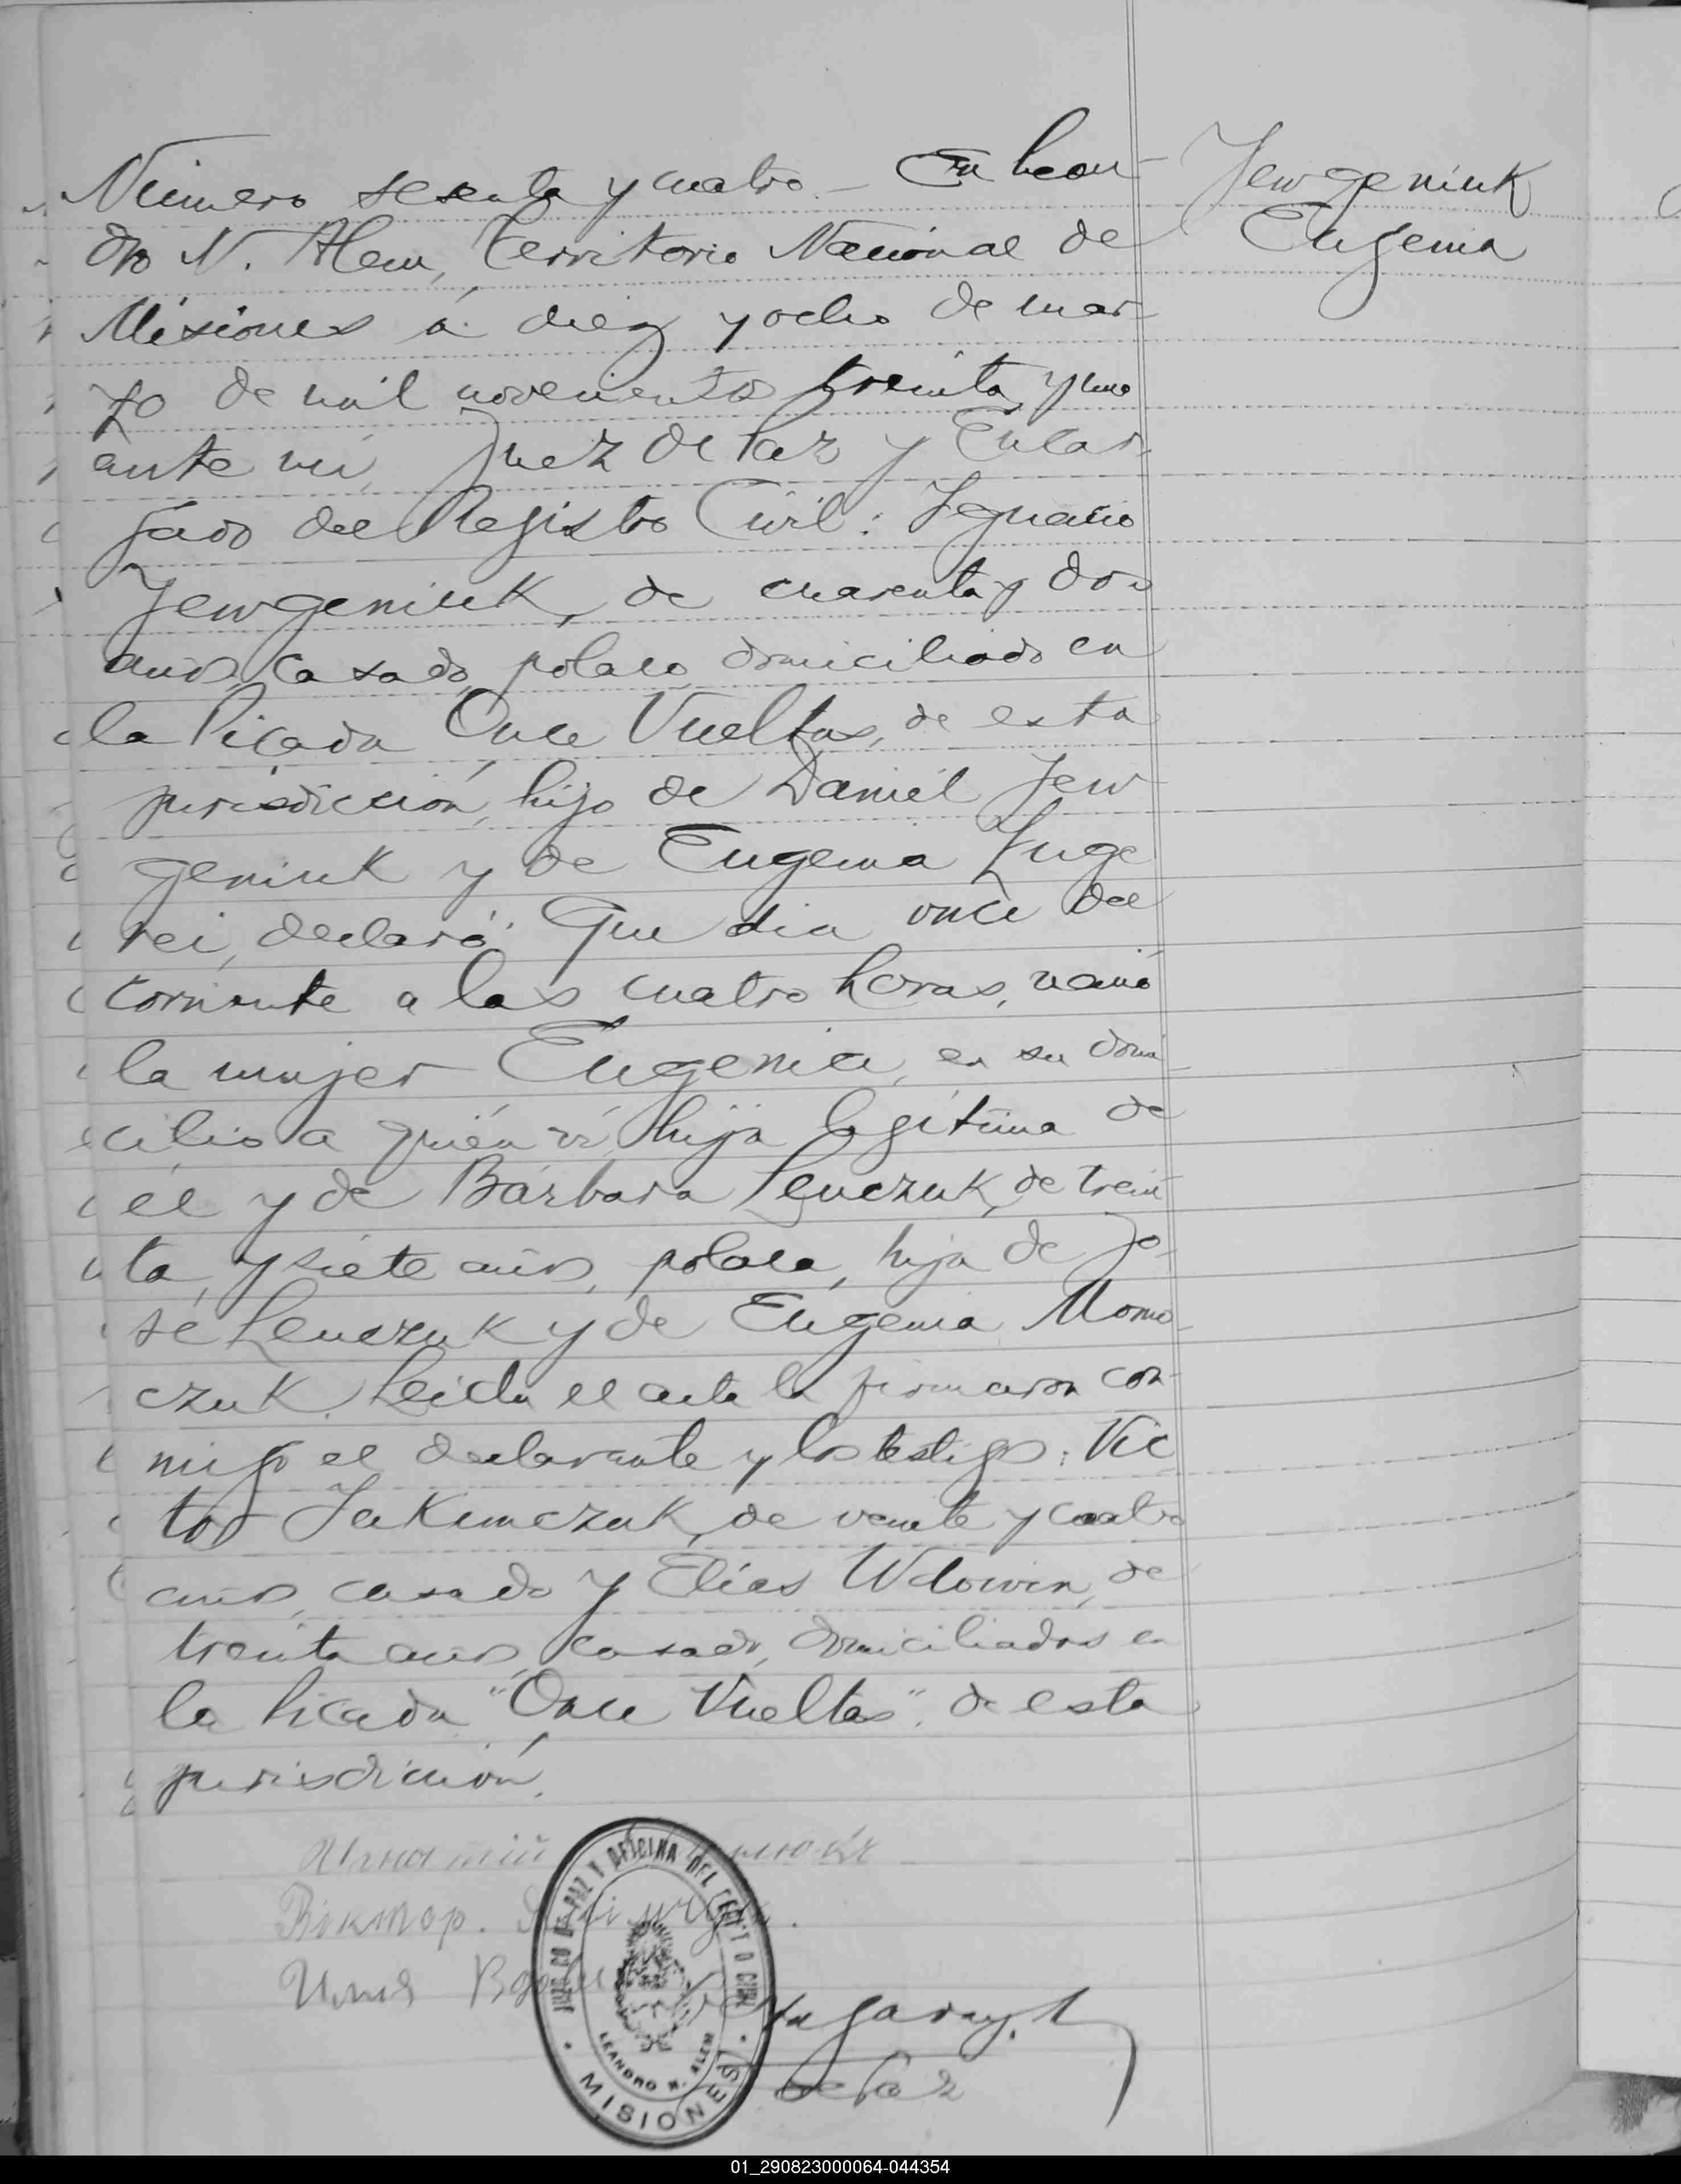 Jewgeniuk
Eugenia
Número sesenta y cuatro – En Lean-
dro N. Alem, Territorio Nacional de
Misiones á diez y ocho de mar-
zo de mil novecientos treinta y uno
ante mí, Juez de Paz y Encar-
gado del Registro Civil: Ignacio
Jewgeniuk, de cuarenta y dos
años, casado, polaco, domiciliado en
la Picada Once Vueltas, de esta
jurisdicción, hijo de Daniél Jew
geniuk y de Eugenia
declaró: Que dia once del
corriente a las cuatro horas, nació
la mujer Eugenia, en su domi
cilio a quién ví, hija legítima de
él y de Bárbara Lenczuk, de trein
ta, y siete años, polaca, hija de Jo-
sé Lenczuk y de Eugenia Momo
czuk. Leida el acta la firmaron con-
migo el declarante y los testigos: Vic
tor Jakimczuk, de veinte y cuatro
años, casado y Elías Wdowin, de
treinta años, casado, domiciliados en
la Picada "Once Vueltas" de esta
jurisdicción.
Віктор.
Илия
JUZGADO DE PAZ Y OFICINA DEL REGISTRO CIVIL
LEANDRO N. ALEM
MISIONES
de Paz
01_290823000064-044354